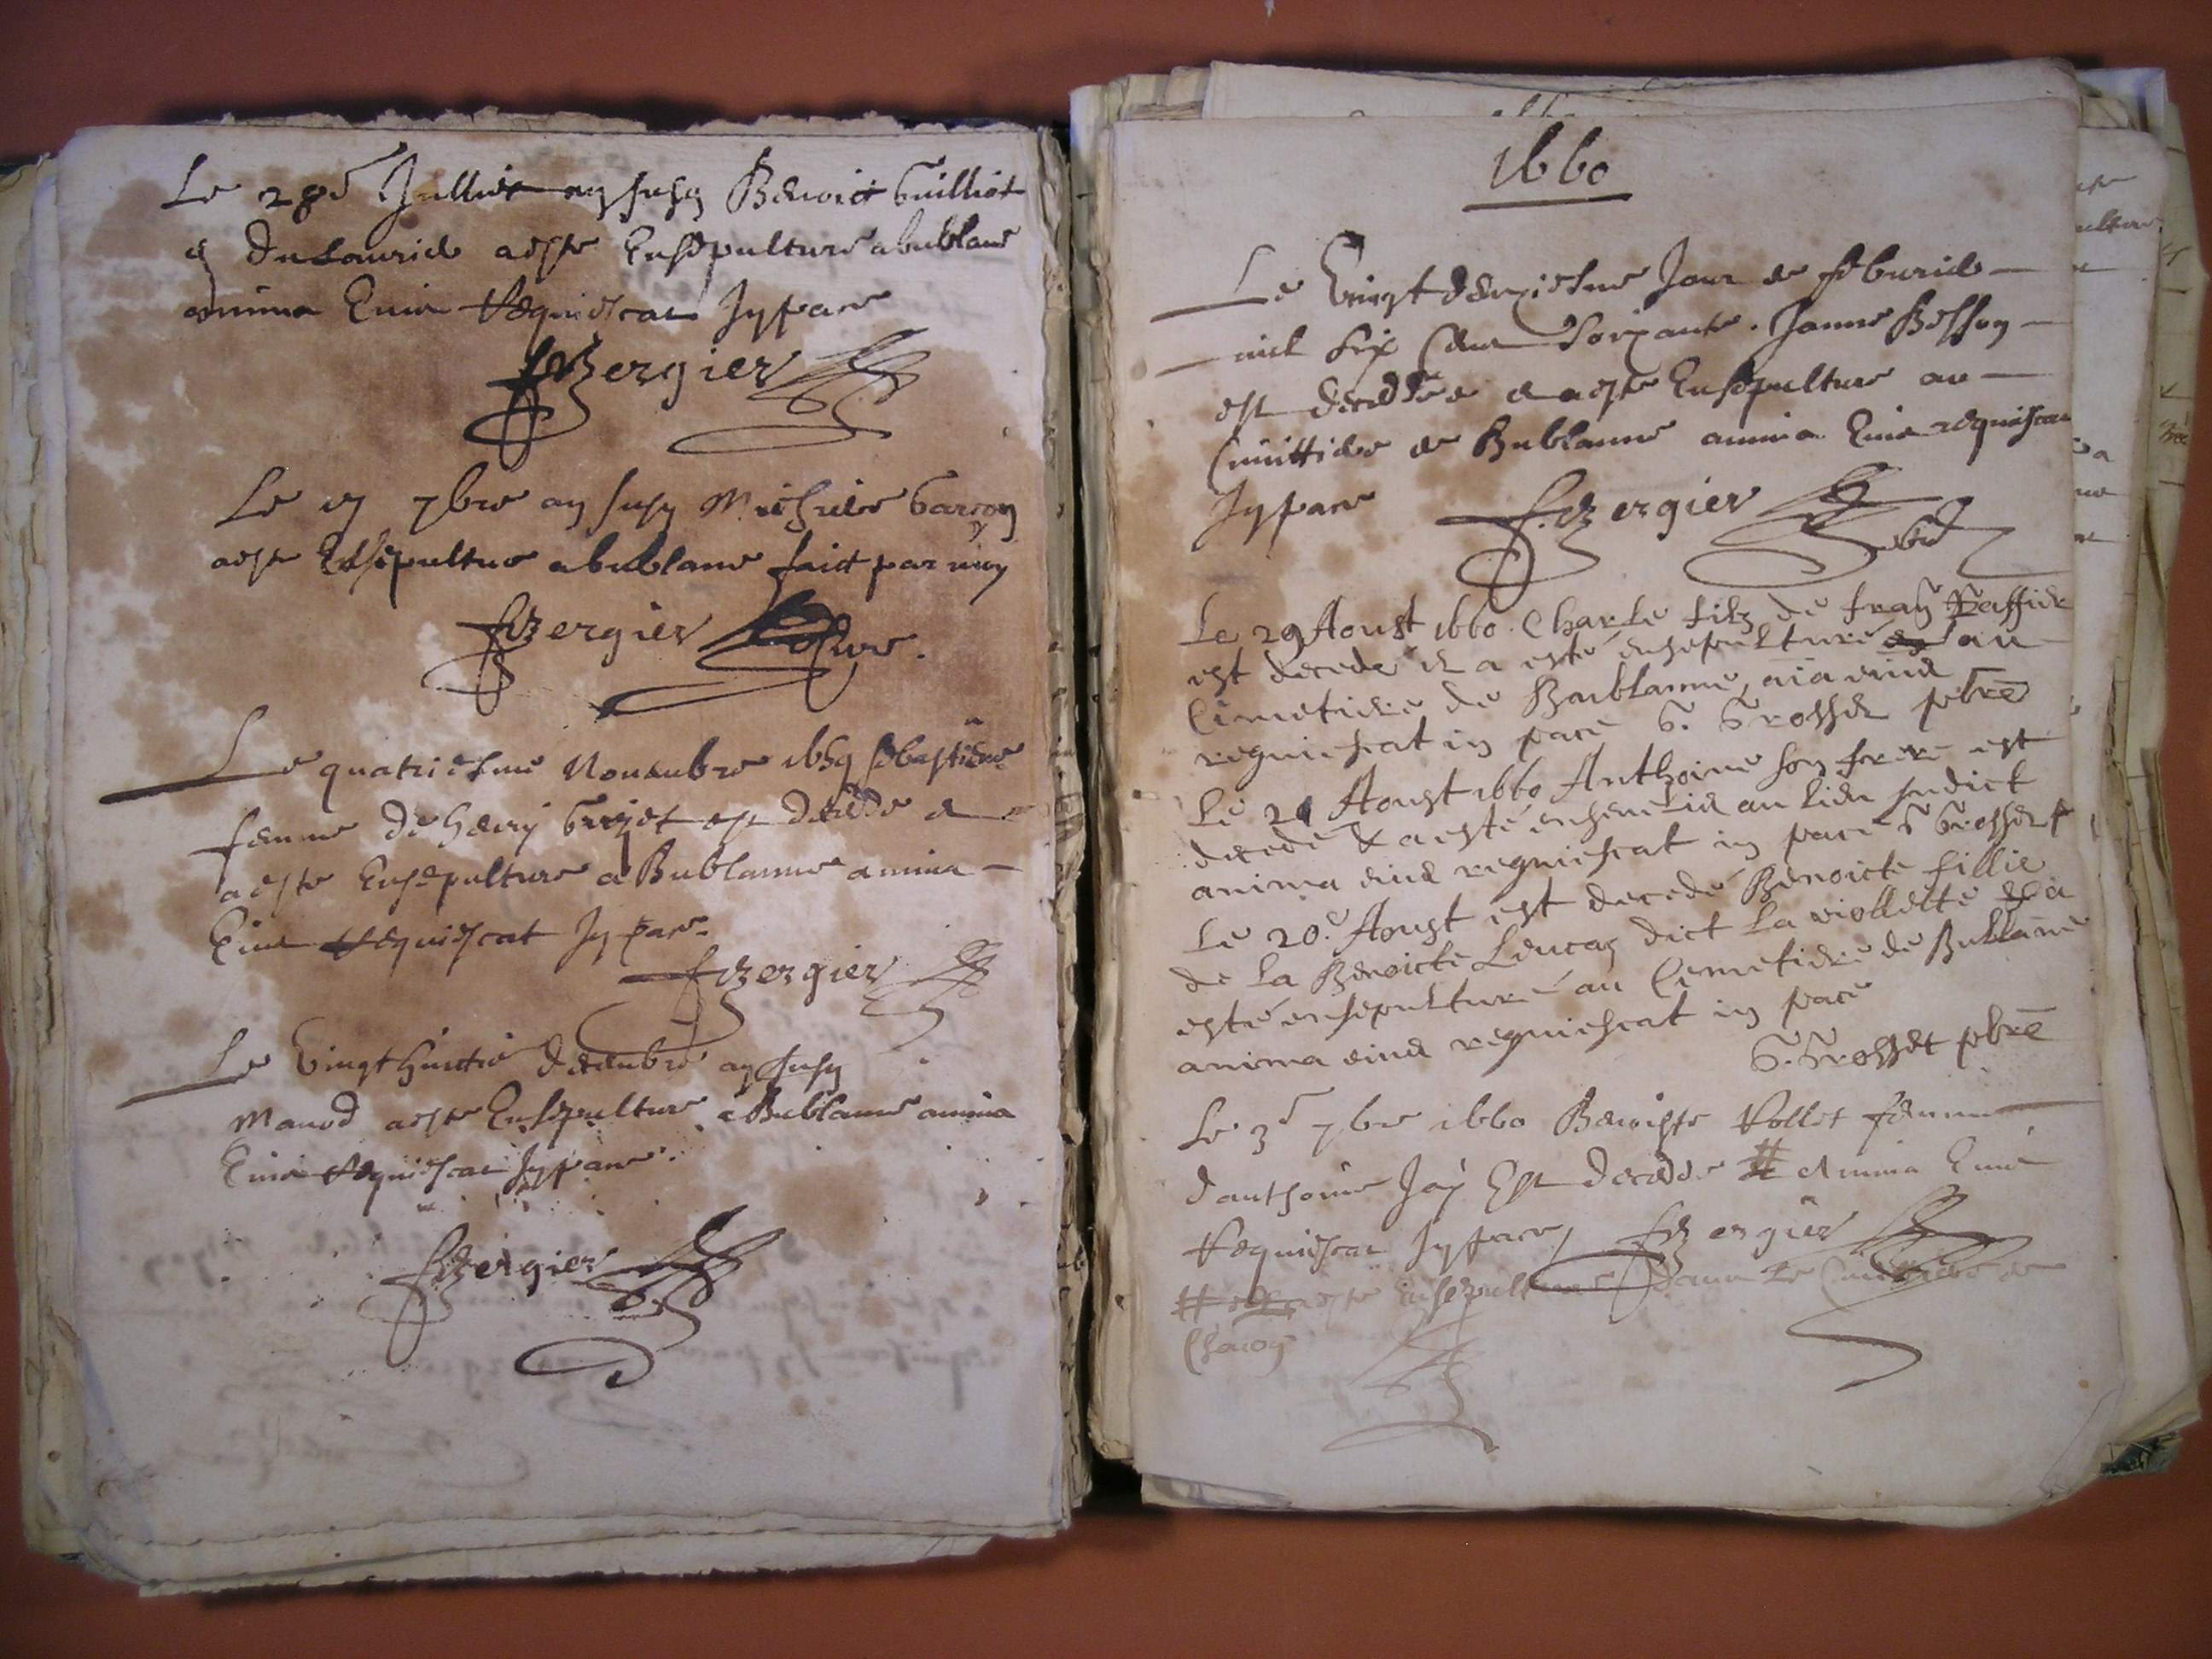 Le 28e Julliet an susd Benoict Guilliot
aeste Ensepulture a bublane
anima Eius Requiescat In pace
Bergier
Le 7bre an susd Michiele Garron
aeste Ensepulture a bublane faict par moy
Bergier Cure.
Le quatriesme Nouembre 1659 sebastiene
femme de henry est decede et
a este Ensepulture a Bublanne anima
Eius Requiescat In pace
Bergier
Le Vingt huictie decembre an susd
Manod aeste Ensepulture a Bublanne anima
Eius Requiescat In pace.
Bergier
1660
Le Vingt deuxiesme Jour de feburier
mil six Cent Soixante. Janne Besson
est decedée et a este Ensepulture au
Cimittiere de Bublanne anima Eius requiscat
In pace Bergier
Le 29 Aoust 1660 Charle filz de fran Raffier
est decede et a esté ensepulturé au
Cimetiere de Bublanne, aia eius
requiescat in pace G. Grosset pbre
Le Aoust 1660 Anthoine son frere est
decede & a esté enseueli au lieu susdict
anima eius requiescat in pace G Grosset p
Le 20e Aoust est decedé Benoicte fillie
de la Benoicte Leucaz dict la viollette & a
esté ensepulturé au Cemetiere de Bublane
anima eius requiescat in pace
G. Grosset pbre
Le 3e 7bre 1660 Benoiste Rollet femme
danthoine Jay Est decede # Anima Eius
Requiescat In pace Bergier
# aeste Ensepulture dans Le Cimittiere de
Chanoz